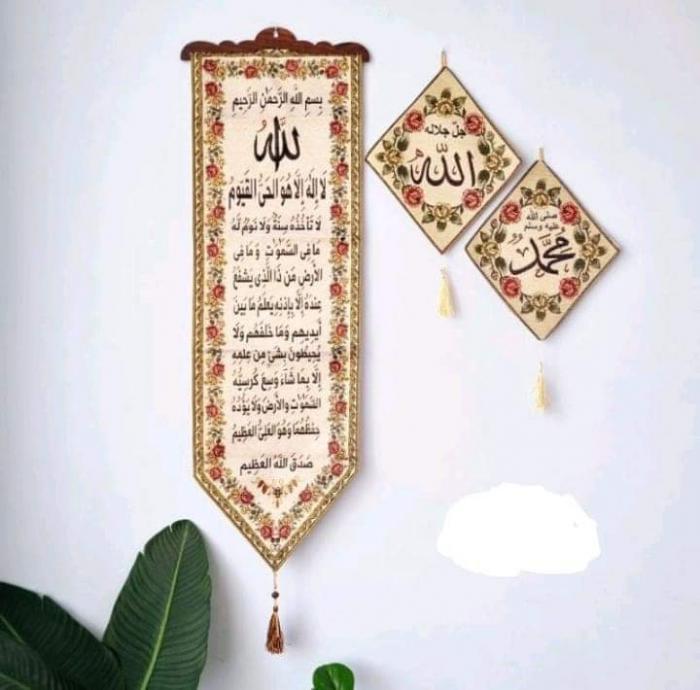 بِسمِ اللهِ الرَّحمٰنِ الرَّحِيمِ
اَللّٰهُ
لَا اِلٰهَ اِلَّا هُوَ الحَیُّ القَیُّومُ
لَا تَأخُذُهُ سِنَةٌ وَلَا نَومٌ لَهُ
مَا فِی السَّمٰوٰتِ وَ مَا فِی
الأَرضِ مَن ذَا الَّذِی یَشفَعُ
عِندَهُ إِلَّا بِإِذنِهِ یَعلَمُ مَا بَینَ
أَیدِیهِم وَمَا خَلفَهُم وَلَا
یُحِیطُونَ بِشَیءٍ مِن عِلمِهِ
إِلَّا بِمَا شَاءَ وَسِعَ کُرسِیُّهُ
السَّمٰوٰتِ وَالأَرضَ وَلَا یَؤُدُهُ
حِفظُهُمَا وَهُوَ العَلِیُّ العَظِیمُ
صَدَقَ اللهُ العَظِیم
جلّ جلاله
الله
صلى الله
عليه وسلم
محمد